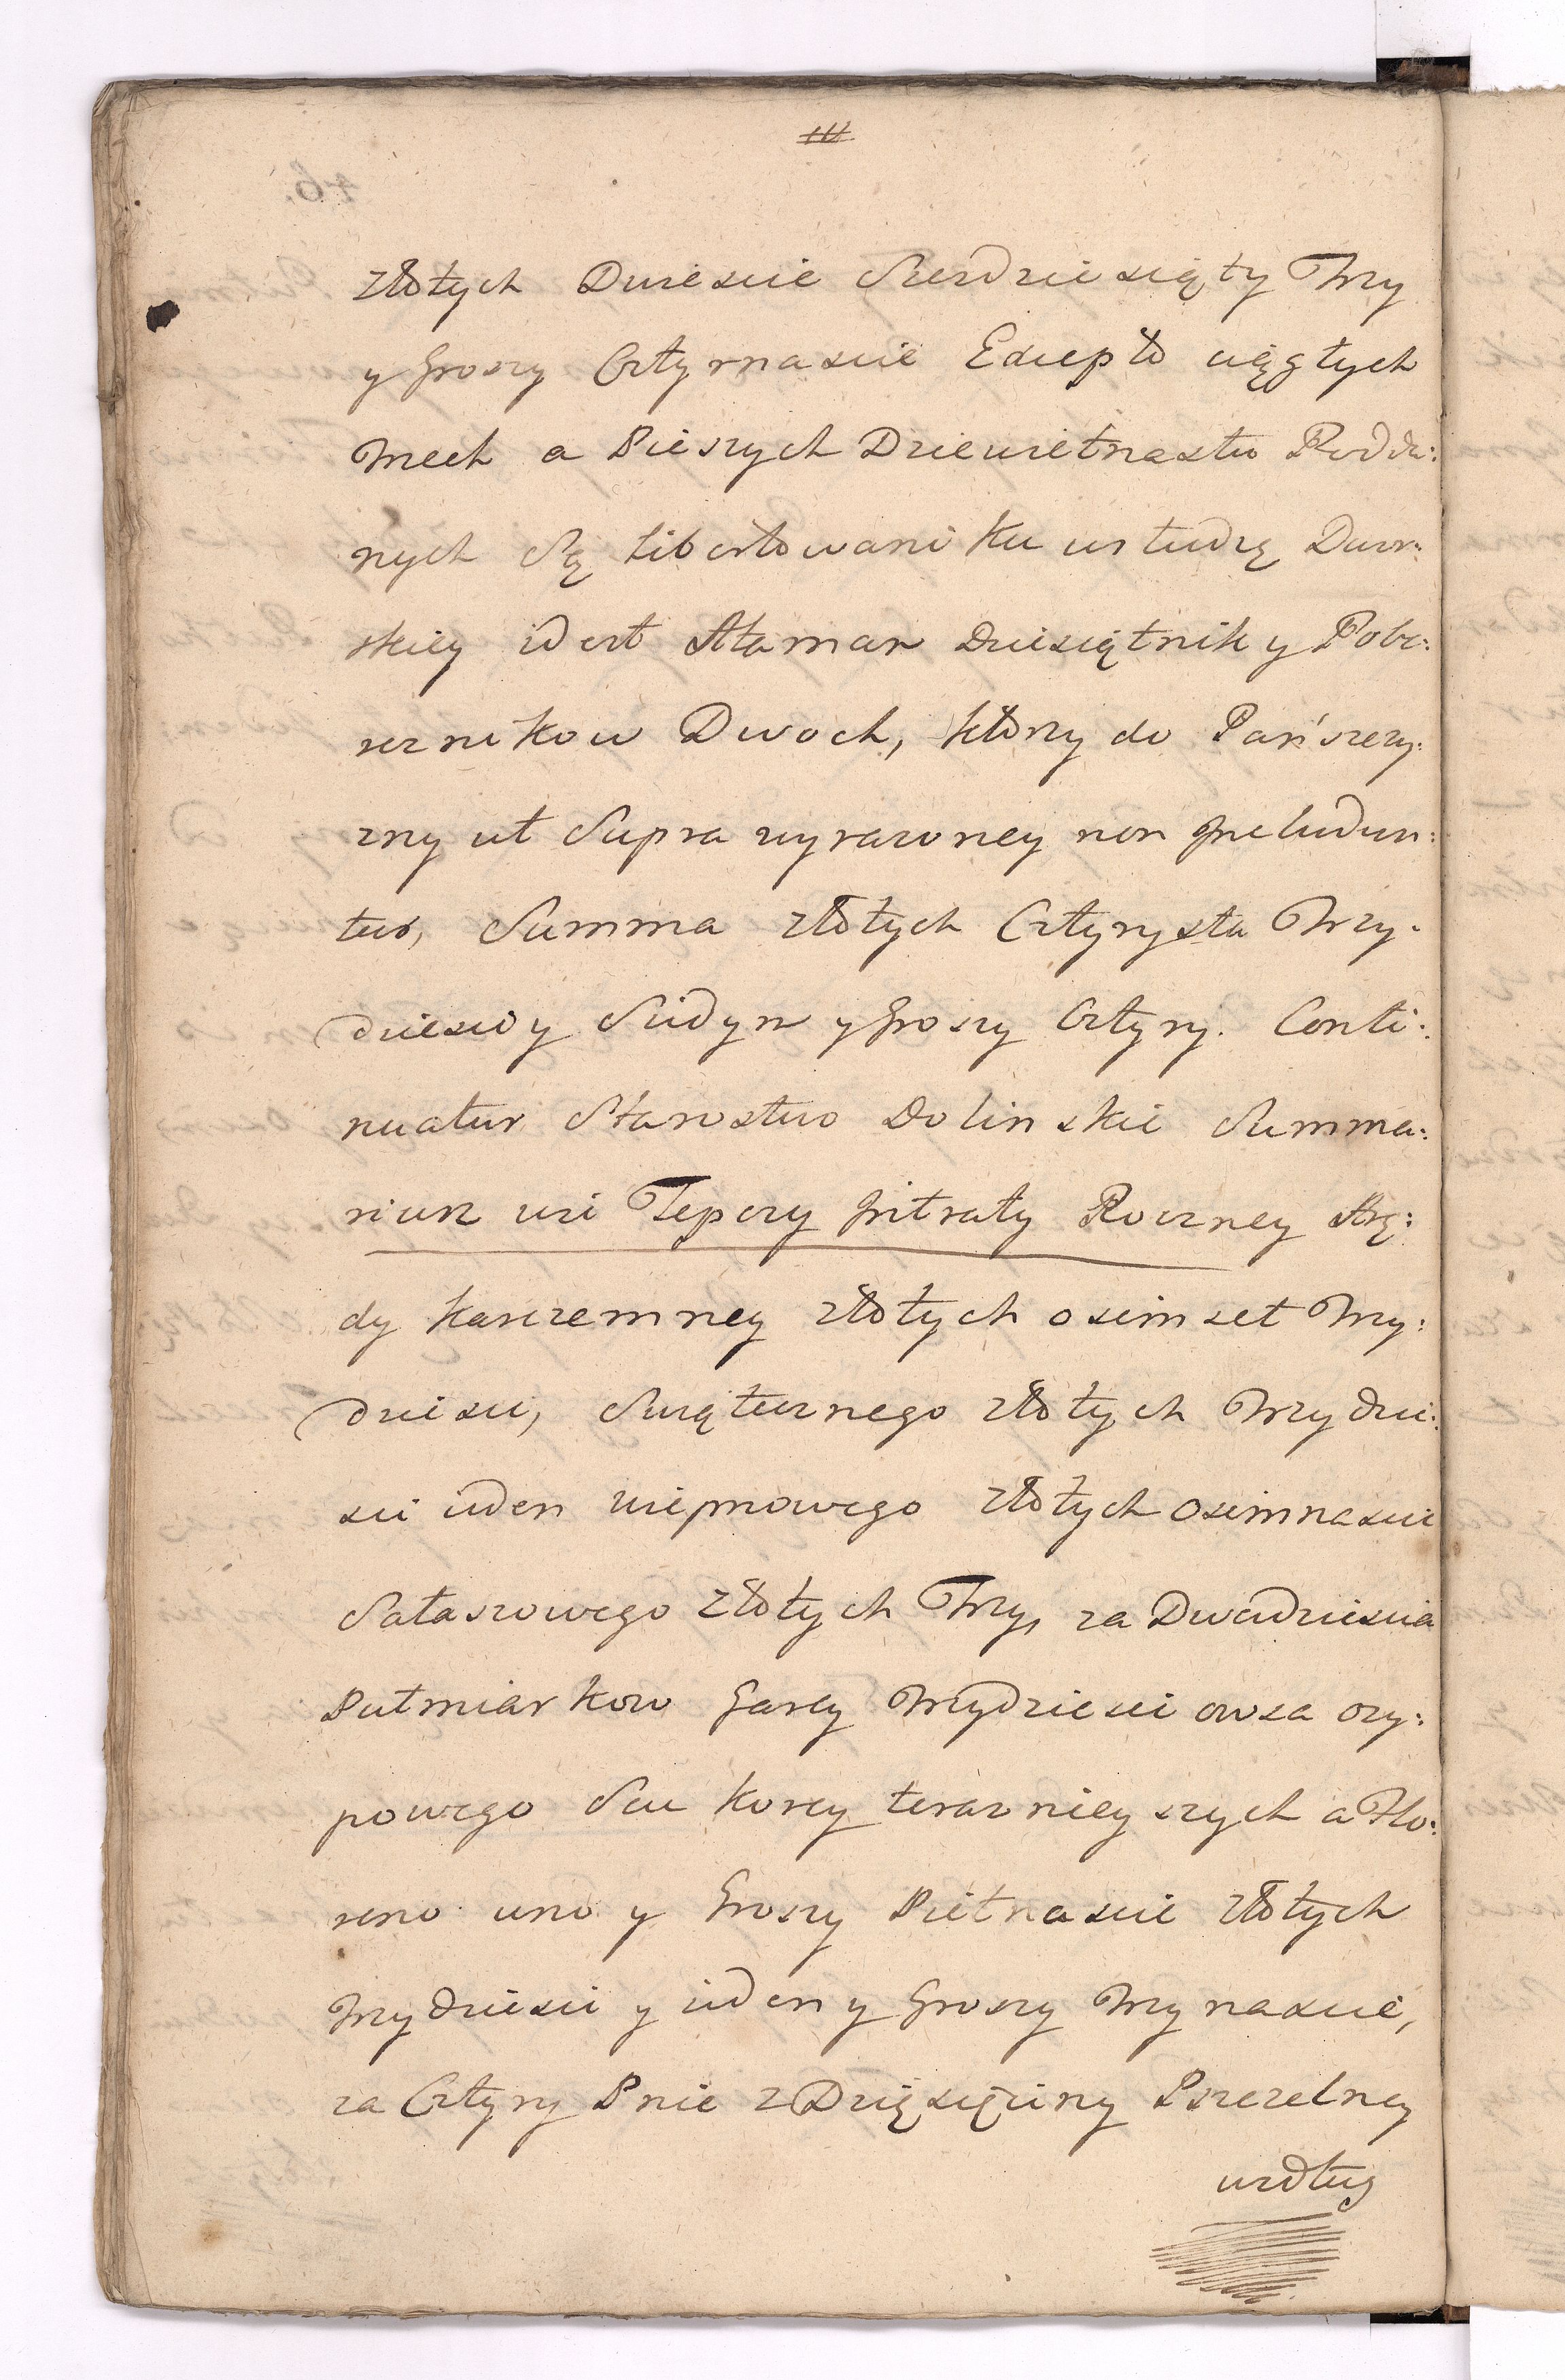 złotych Dwiescie Szesdziesiąty Trzy
y Groszy Cztyrnascie Exceptо ciągłych
Trzech a Pieszych Dziewietnastu Poddа:
nych Są libertowani Ku usłudzę Dwor:
skiey id est Ataman Dziesiątnik y Pobe:
reznikow Dwoch, ktorzy do Pańszczy:
zny ut Supra wyrazoney non Includun:
tur, Summa złotych Cztyrysta Trzy:
dziesci y Siedym y Groszy Cztyry. Conti:
nuatur Starostwo Dolinskie Summa:
riusz wsi Tepczy Intraty Roczney Arę:
dy karczemney złotych osimset Trzy:
dziesci, Swiątecznego złotych Trzydzie:
sci ieden wieprzowego złotych Osimnascie
Sałaszowego złotych Trzy, za Dwadziescia
Pułmiarkow Garcy Trzydziesci owsa osy:
powego Seu korcy terazniey szych a Flo:
reno uno y Groszy Pietnascie złotych
Trzydziesci y ieden y Groszy Trzynascie,
za Cztyry Pnie z Dzięsięciny Pszczelney
według